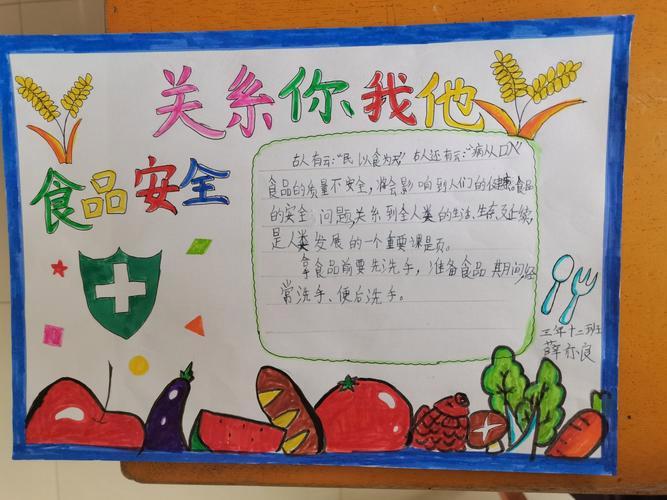 关系你我他
食品安全
古人有云:“民以食为天”古人还有云:“病从口入”
食品的质量不安全,将会影响到人们的健康。食品
的安全问题,关系到全人类的生活、生存、延续,
是人类发展的一个重要课是页。
拿食品前要先洗手,准备食品期间,经
常洗手、便后洗手。
三年十二班
薛亦良